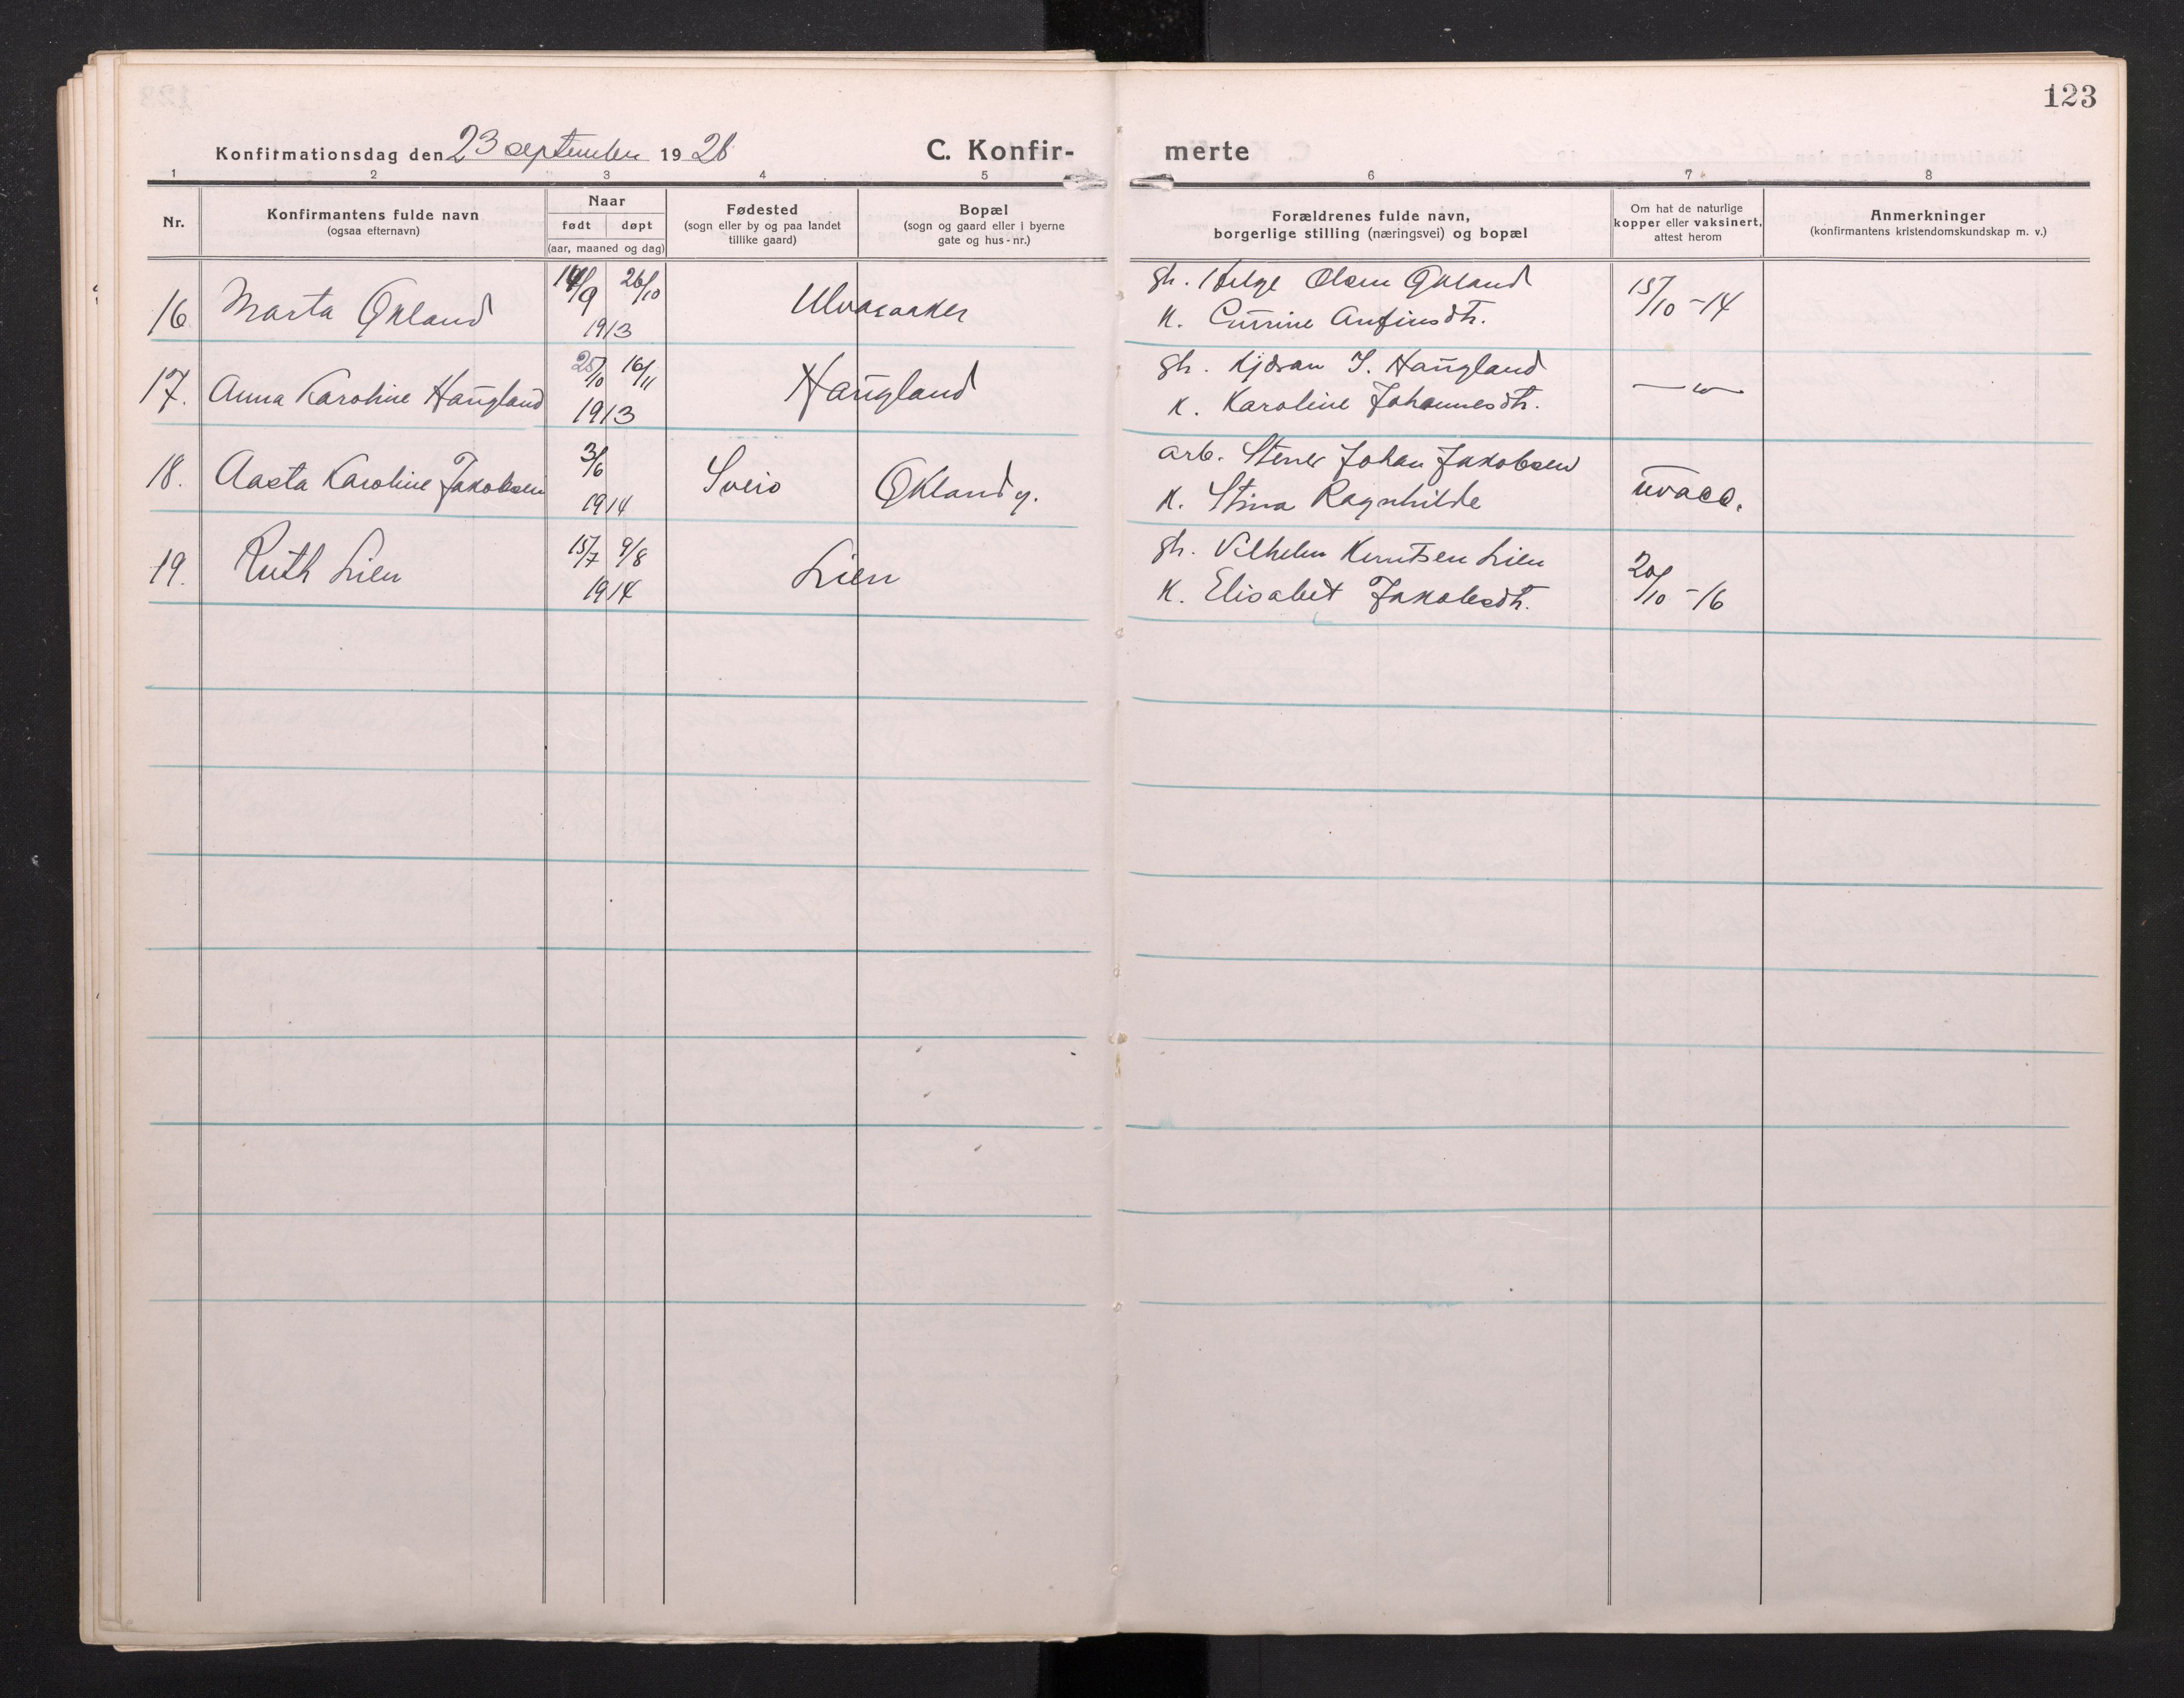 123
Konfirmationsdag den 23 september 1928
C. Konfir-
merte
1 2 3 4 5 6 7 8
Nr.
Konfirmantens fulde navn
(ogsaa efternavn)
Naar
født døpt
(aar, maaned og dag)
Fødested
(sogn eller by og paa landet
tillike gaard)
Bopæl
(sogn og gaard eller i byerne
gate og hus-nr.)
Forældrenes fulde navn,
borgerlige stilling (næringsvei) og bopæl
Om hat de naturlige
kopper eller vaksinert,
attest herom
Anmerkninger
(konfirmantens kristendomskundskap m. v.)
16 Marta Økland 14/9 26/10 1913 Ulvaraaker
gh. Helge Olsen Økland
K. Gurine Anfinsdtr.
15/10 -14
17. Anna Karoline Haugland 25/10 16/11 1913 Haugland
gh. Kjøran I. Haugland
K. Karoline Johannesdtr.
— " —
18. Aasta Karoline Jakobsen 3/6 1914 Sveio Økland y.
arb. Stener Johan Jakobsen
K. Stina Ragnhilde
uvacc.
19. Ruth Lien 15/7 9/8 1914 Lien
gh. Vilhelm Knutsen Lien
K. Elisabet Jakobsdtr.
20/10 -16